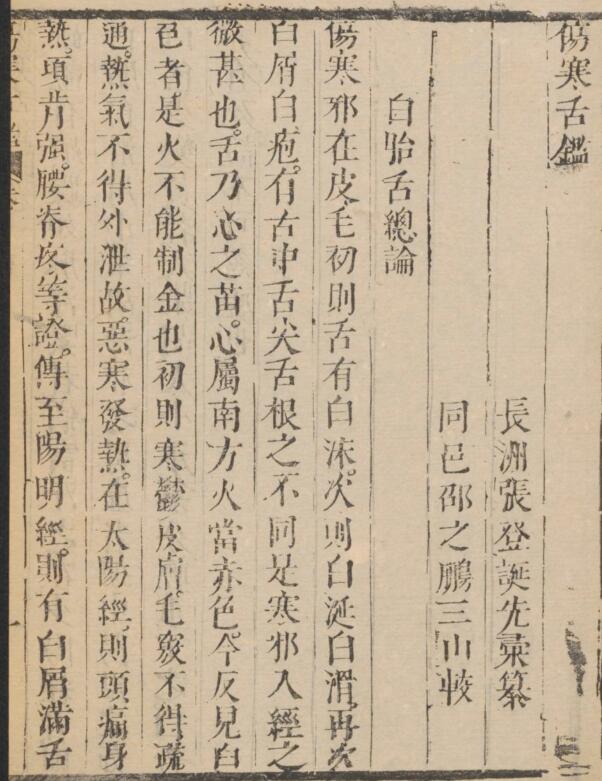 傷寒舌鑑
長洲張登誕先彙纂
同邑邵之鵬三山較
白胎舌總論
傷寒邪在皮毛初則舌有白沫次則白涎白滑再次
白屑白疱有舌中舌尖舌根之不同是寒邪入經之
微甚也舌乃心之苗心屬南方火當赤色今反見白
色者是火不能制金也初則寒鬱皮膚毛竅不得疏
通熱氣不得外泄故惡寒發熱在太陽經則頭痛身
熱項背强腰脊疼等證傳至陽明經則有白屑滿舌